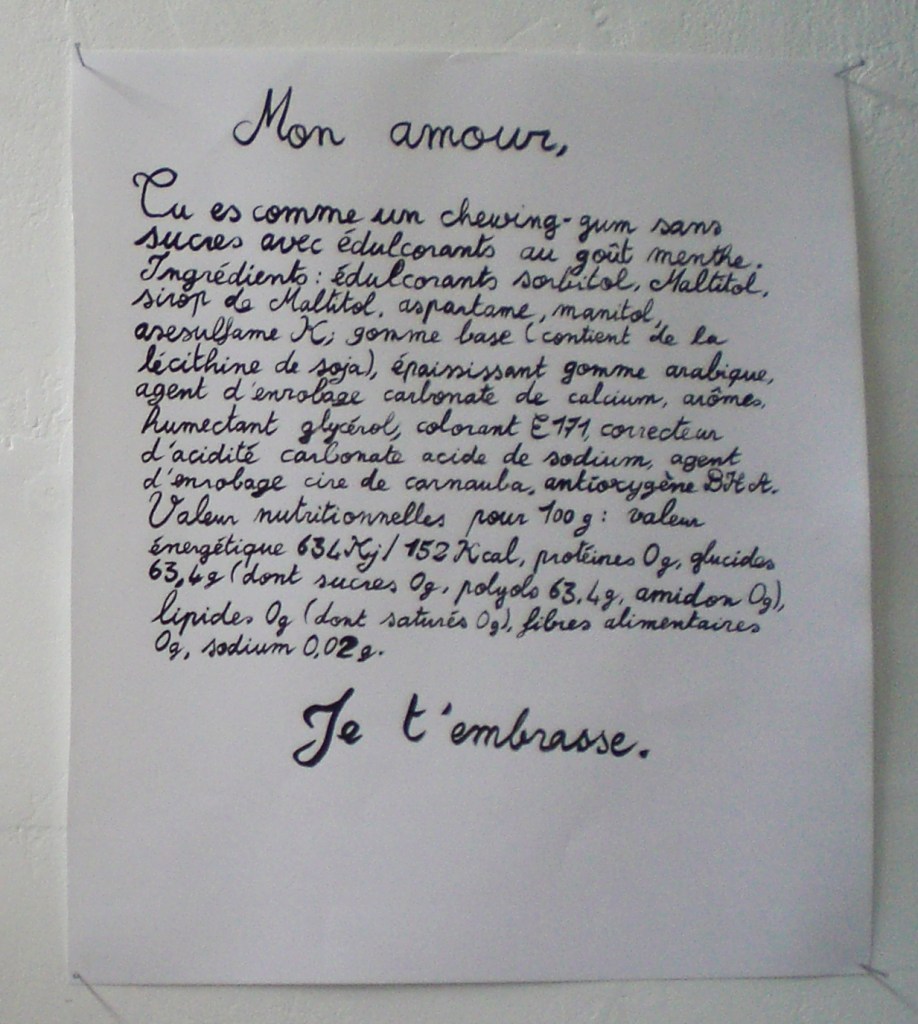 Mon amour,
Tu es comme un chewing-gum sans
sucres avec édulcorants au goût menthe.
Ingrédients : édulcorants sorbitol, Maltitol,
sirop de Maltitol, aspartame, manitol,
asesulfame K; gomme base (contient de la
lécithine de soja), épaississant gomme arabique,
agent d'enrobage carbonate de calcium, arômes,
humectant glycérol, colorant E171, correcteur
d'acidité carbonate acide de sodium, agent
d'enrobage cire de carnauba, antioxygène BHA.
Valeur nutritionnelles pour 100g : valeur
énergétique 634Kj/152Kcal, protéines 0g, glucides
63,4g (dont sucres 0g, polyols 63,4g, amidon 0g),
lipides 0g (dont saturés 0g), fibres alimentaires
0g, sodium 0,02g.
Je t'embrasse.